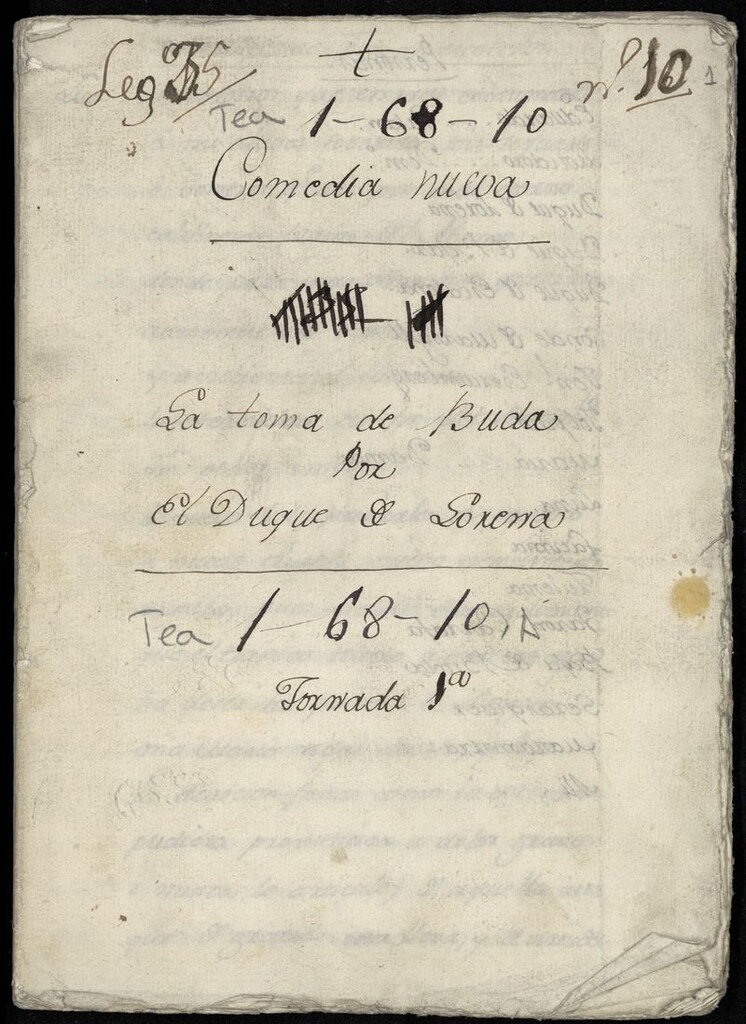 +
Leg 35
nº. 10
1
Tea 1-68-10
Comedia nueva
La toma de Buda
Por
El Duque de Lorena
Tea 1-68-10, A
Jornada 1ª